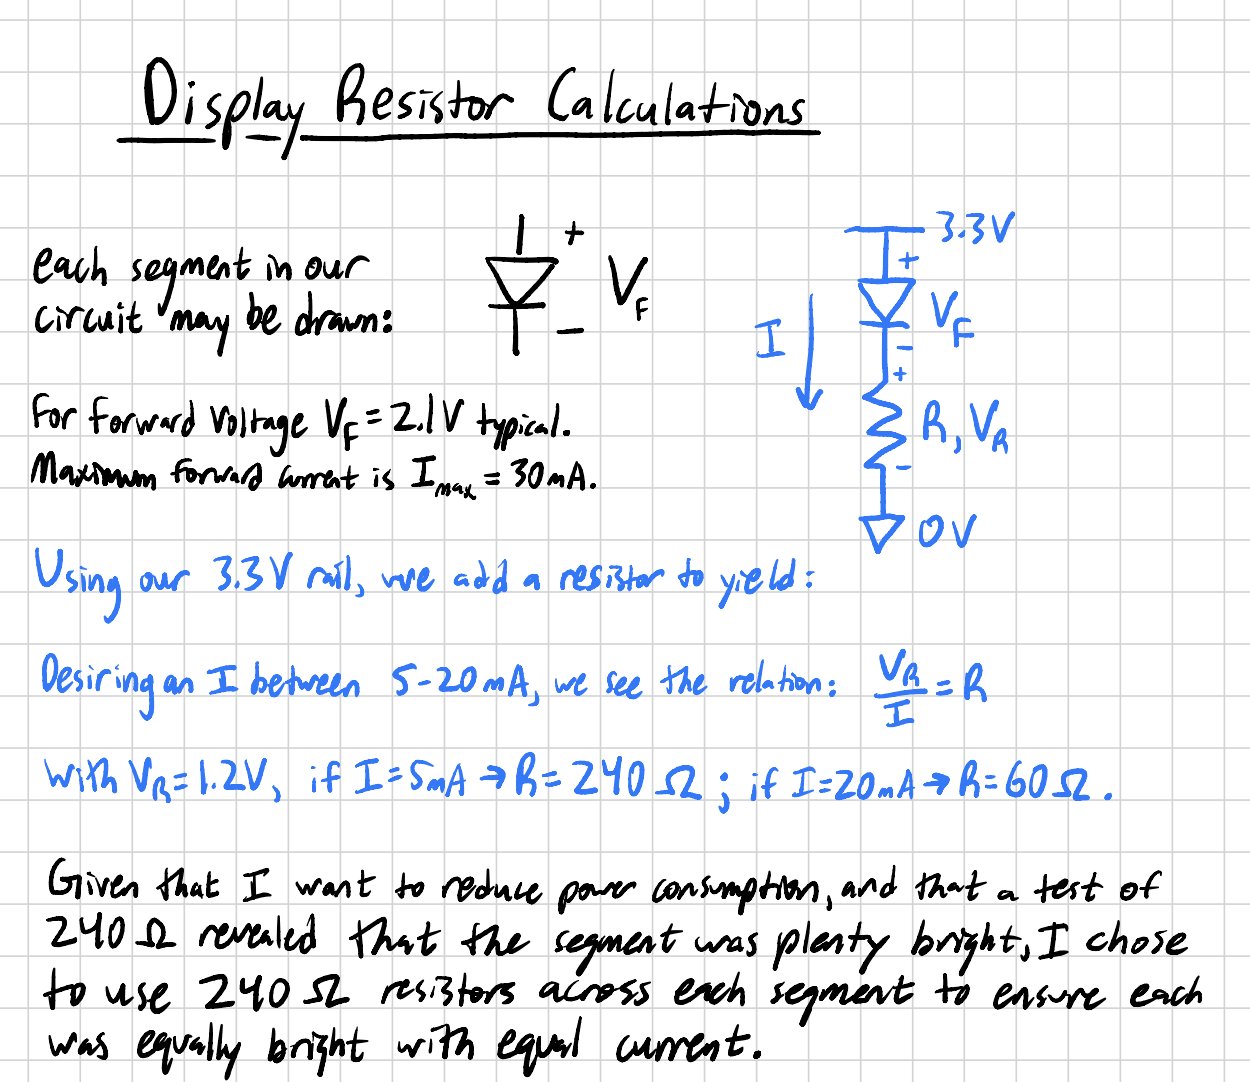 Display Resistor Calculations
each segment in our
circuit may be drawn:
+
V_F
−
3.3V
+
V_F
−
I
+
R, V_R
−
0V
For forward voltage V_F = 2.1V typical.
Maximum forward current is I_max = 30mA.
Using our 3.3V rail, we add a resistor to yield:
Desiring an I between 5-20mA, we see the relation: V_R/I = R
With V_R = 1.2V, if I = 5mA → R = 240 Ω ; if I = 20mA → R = 60 Ω.
Given that I want to reduce power consumption, and that a test of
240 Ω revealed that the segment was plenty bright, I chose
to use 240 Ω resistors across each segment to ensure each
was equally bright with equal current.